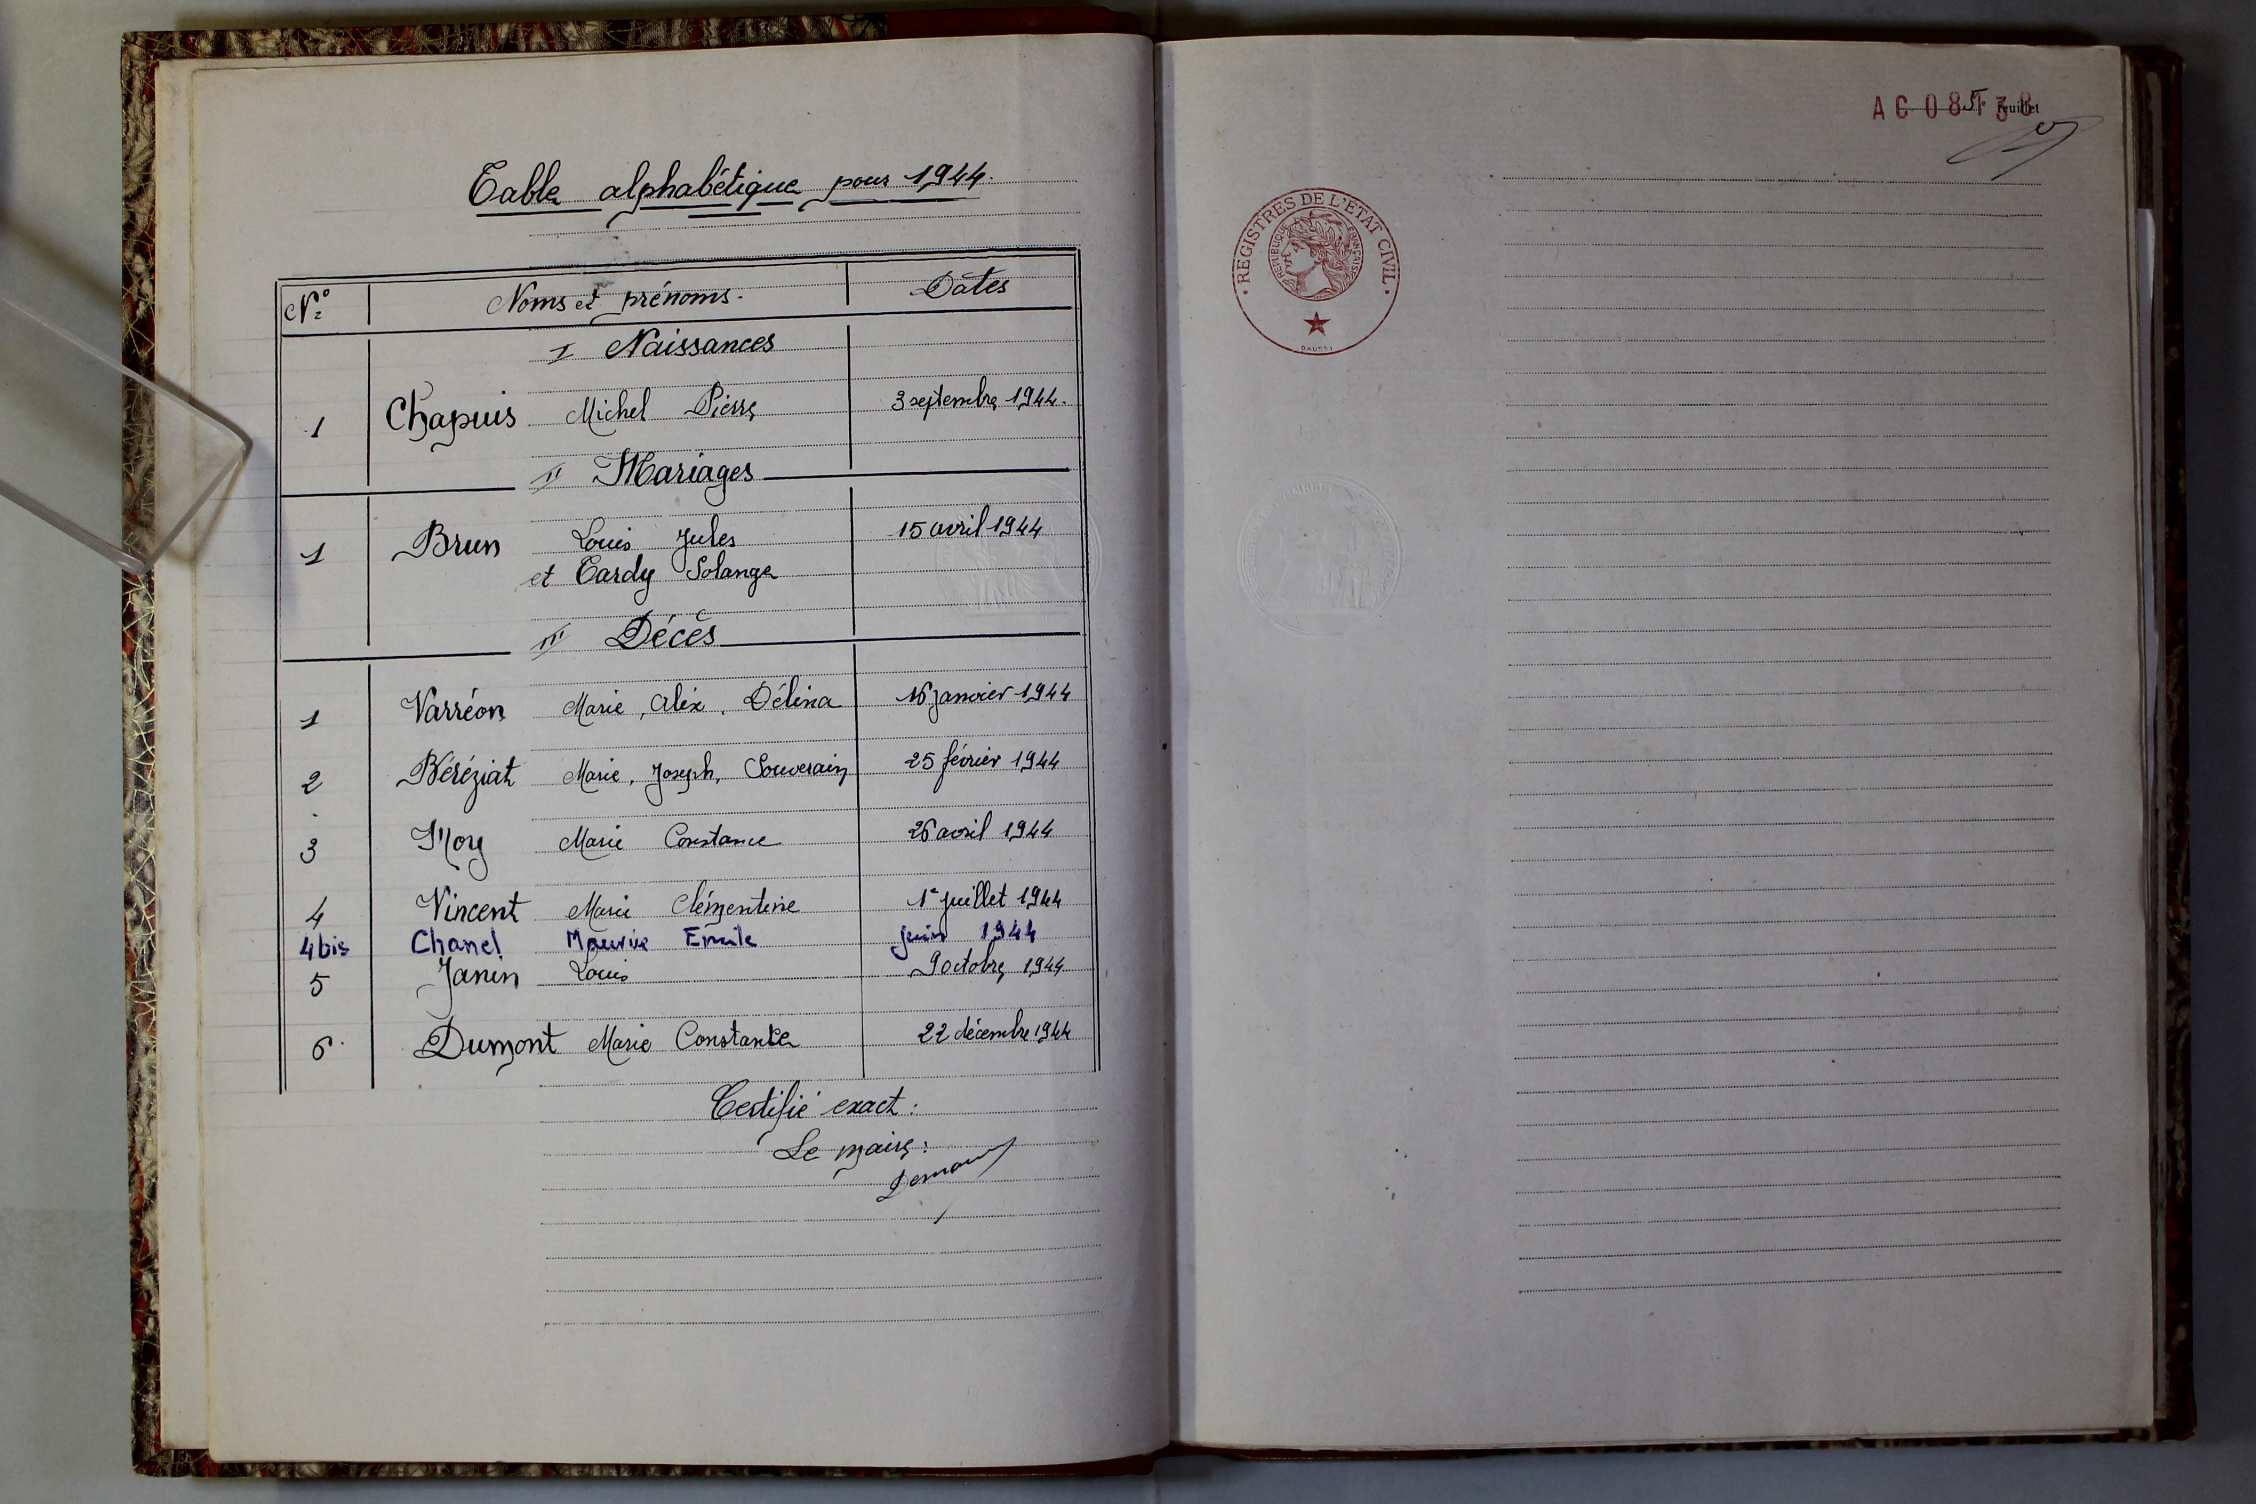 Table alphabétique pour 1944.
N° Noms et prénoms. Dates
I Naissances
1 Chapuis Michel Pierre 3 septembre 1944.
II Mariages
1 Brun Louis Jules 15 avril 1944
et Tardy Solange
III Décès
1 Varréon Marie, Alix, Délina 16 janvier 1944
2 Béréziat Marie, Joseph, Souverain 25 février 1944
3 Mory Marie Constance 26 avril 1944
4 Vincent Marie Clémentine 1er juillet 1944
4 bis Chanel Maurice Emile juin 1944
5 Janin Louis 9 octobre 1944
6 Dumont Marie Constance 22 décembre 1944
Certifié exact:
Le maire:
AC 08138
5e feuillet
REGISTRES DE L'ETAT CIVIL
REPUBLIQUE FRANÇAISE